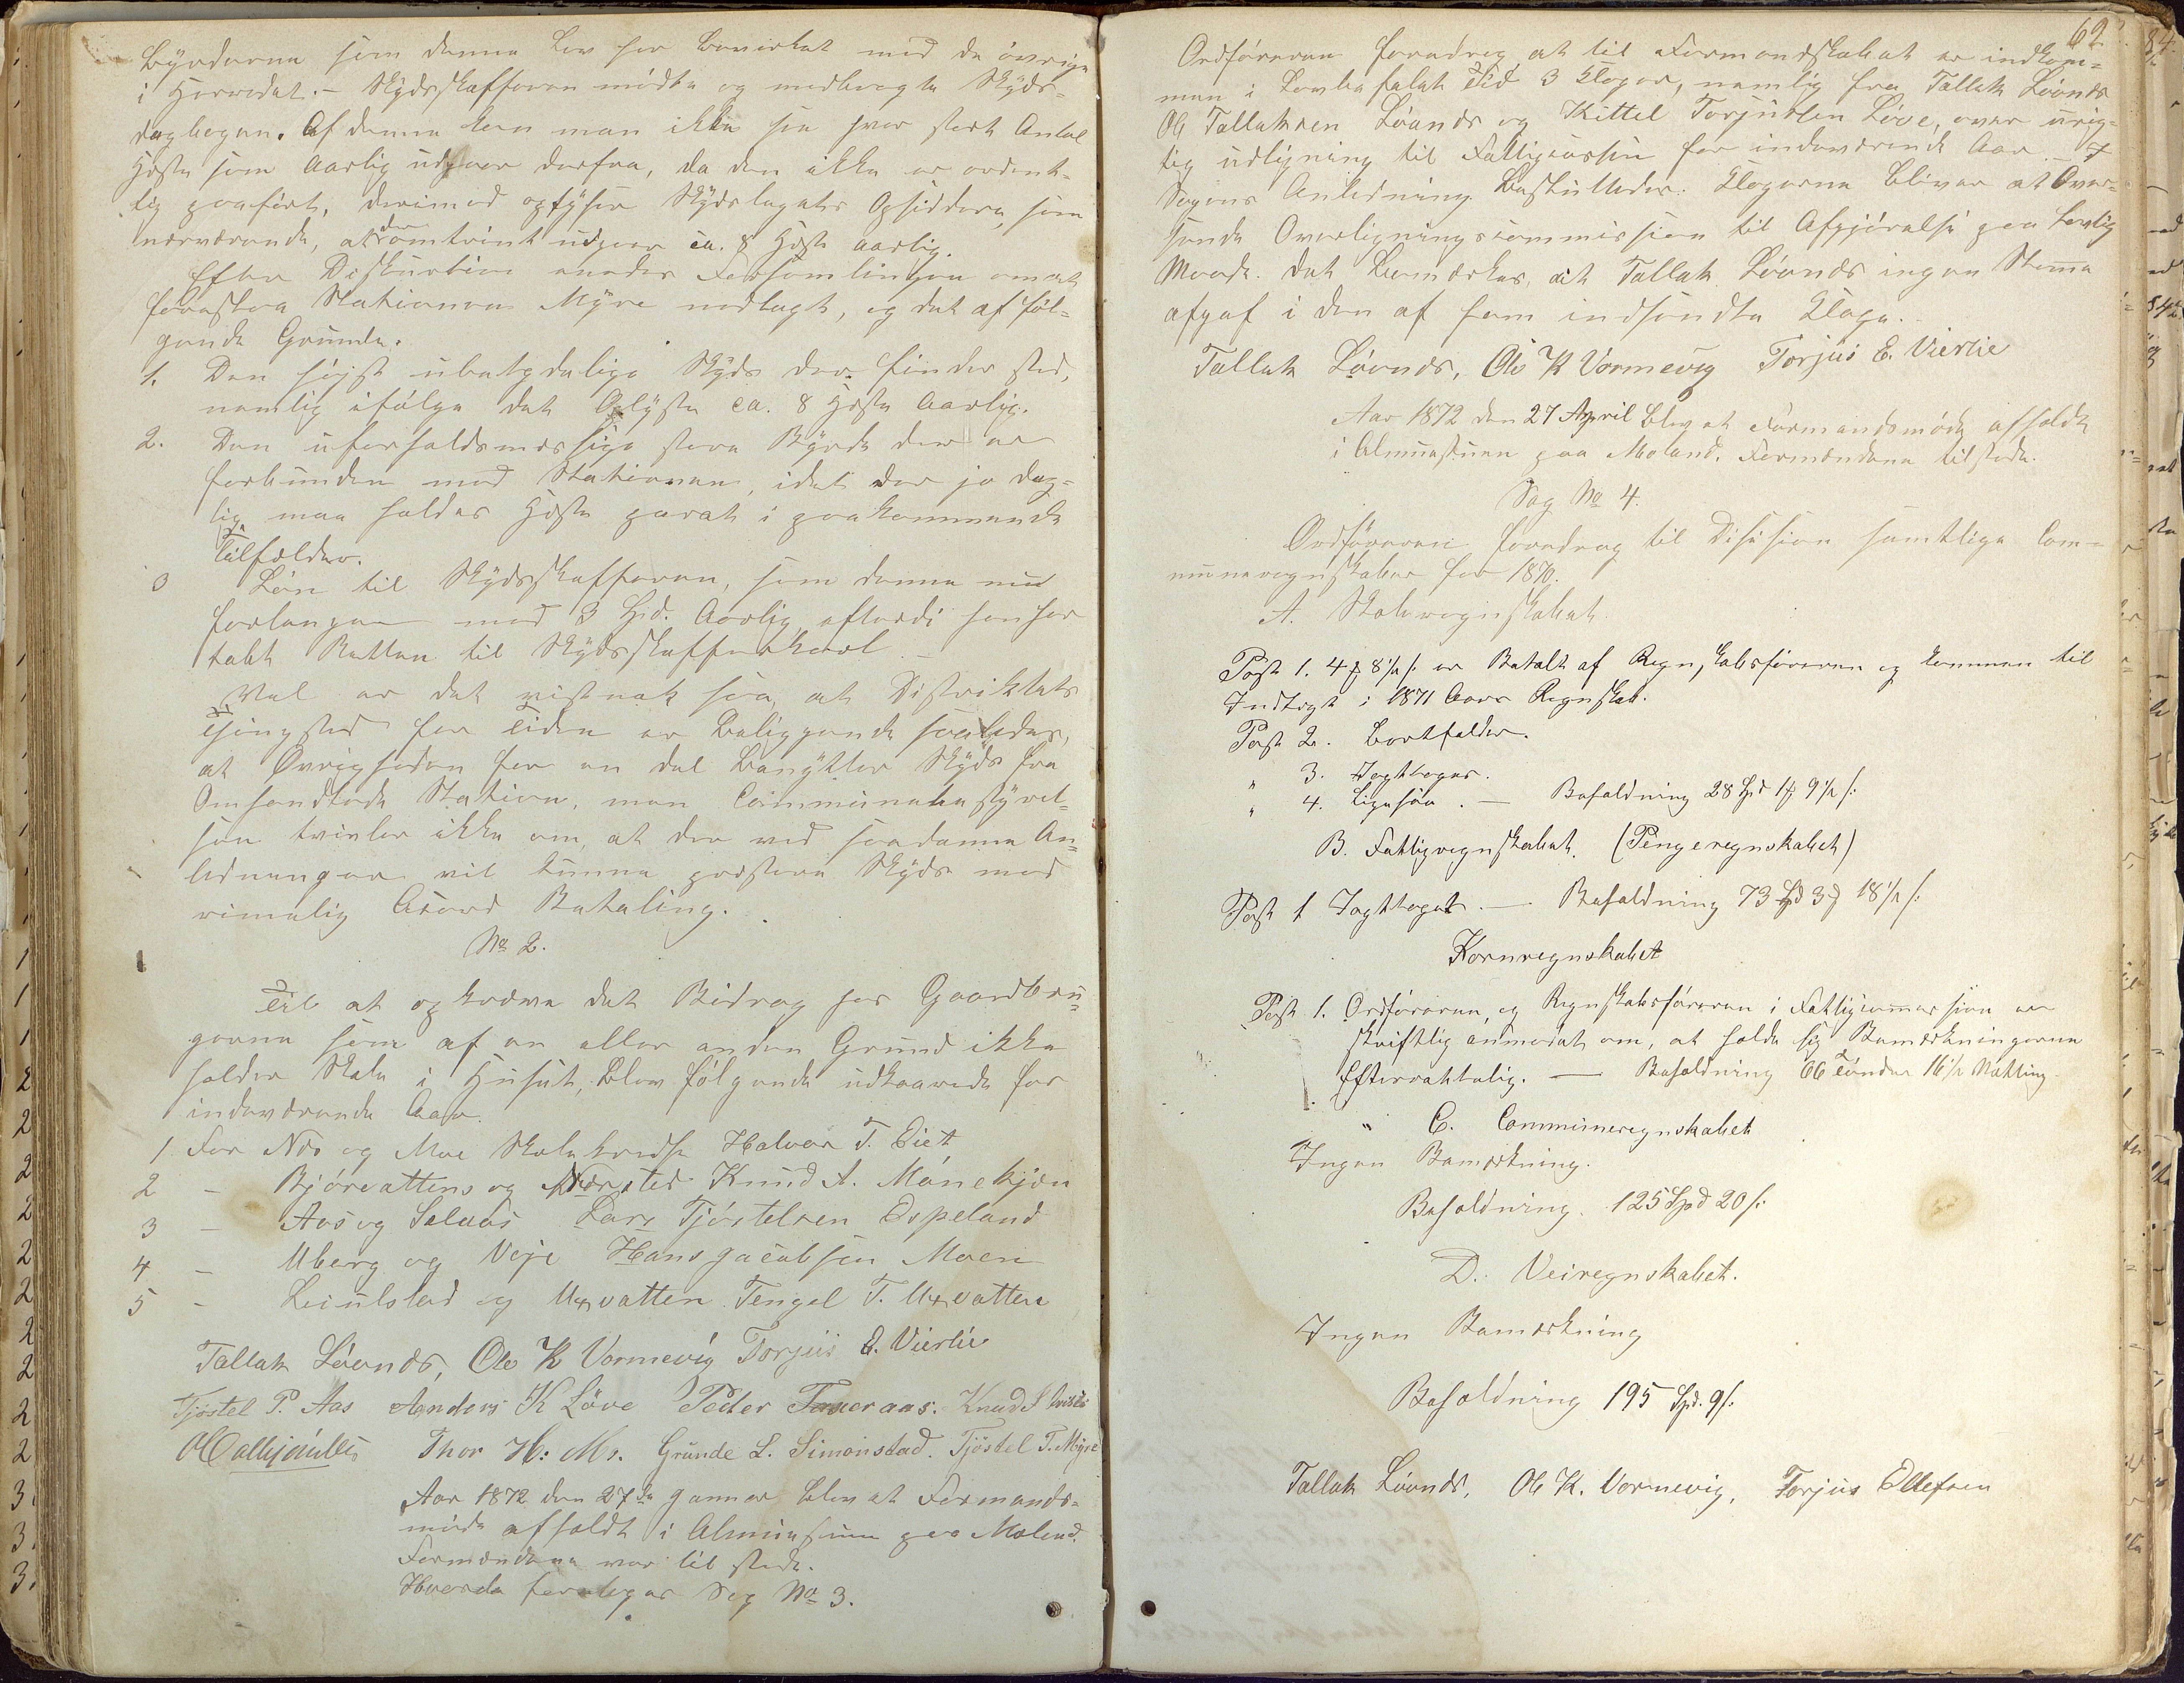 Byrderne som denne Lov har bevirket med de øvrige
i Herredet. – Skydsskafferen mødte og medbragte Skyds-
dagbogen. Af denne kan man ikke see hvor stort Antal
Heste som Aarlig udgaar derfra, da den ikke er ordent-
lig paaført, derimod oplyser Skydslagets Opsiddere, som
nærværende, at der omtrint udgaar ca. 8 Heste aarlig.
Efter Diskurtion Forsamlingen om at
Stationen Myre nedlagt, og det af føl-
gende Grunde.
1. Den højst ubetydelige Skyds der finder sted,
nemlig ifølge det Oplyste ca. 8 Heste Aarlig.
2. Den uforholdsmæssige store Byrde der er
forbunden med Stationen, idet der jo dag-
lig maa holdes Heste parat i paakommende
Tilfælder.
3 Løn til Skydsskafferen, som denne nu
forlanger med 3 Spd. Aarlig, efterdi han har
tabt Retten til Skydsskafferkarl. –
Vel er det vistnok saa, at Distriktets
Thingsted for Tiden er beliggende saaledes,
at Øvrigheden for en del benytter Skyds fra
Omhandlede Station, men Communebestyrel-
sen tvivler ikke om, at der ved saadanne An-
ledninger vil kunne præstere Skyds mod
rimelig Acord Betaling.
No 2.
Til at opkræve det Bidrag hos Gaardbru-
gerne som af en eller anden Grund ikke
holder Skole i Huset, blev følgende udkaarede for
indeværende Aar.
1 For Næs og Moe Skolekreds Halvor T. Eiet
2 – Bjørvattens og Nærsted Knud A. Mönekjæn
3 – Aas og Selaas Lars Tjøstelsen Espeland
4 – Uberg og Veje Hans Jacobsen Moen
5 – Leiulstad og Uxvatten Tengel T. Uxvatten
Tallak Løvnds, Ole K Vormevig Torjus E. Vierlie
Tjøstel P. Aas Anders K Løve Peder Taxeraas. Knud S
Thor H: Mo. Grunde L. Simonstad. Tjøstel T. Myre
Aar 1872 den 27de Januar blev et Formands-
møde afholdt i Almuestuen paa Moland.
Formændene var til stede.
Hvorda foretoges Sag No 3.
62
Ordføreren foredrog at til Formandskabet er indkom-
men i Lovbefalet Tid 3 Klager, nemlig fra Tallak Løvnds
Ole Tallaksen Løvnds og Kittel Torjusen Løve, over urig-
tig udligning til Fatligcassen for indeværende Aar. – I
Sagens Anledning Besluttedes: Klagerne bliver at Over-
sende Overligningscommissjon til Afgjørelse paa Lovlig
Maade. Det bemærkes, at Tallak Løvnds ingen Stemme
afgaf i den af ham indsendte Klage.
Tallak Løvnds, Ole K Vormevig Torjus E. Vierlie
Aar 1872 den 27 April blev et Formandsmøde afholdt
i Almuestuen paa Moland. Formændene tilstede.
Sag No 4.
Ordføreren foredrog til Disision samtlige Com-
muneregnskaber for 1870.
A. Skoleregnskabet.
Post 1. 4 # 8 1/2 s. er Betalt af Regnskabsføreren og kommer til
Indtægt i 1871 Aars Regnskab.
Post 2. bortfalder.
" 3. Vegttages.
" 4. Ligesaa. – Beholdning 28 Spd 1# 9 1/2 s:
B. Fattigregnskabet. (Pengeregnskabet)
Post 1 Iagttaget. – Beholdning 73 Spd 3 # 18 1/2 s:
Kornregnskabet
Post 1. Ordføreren, og Regnskabsføreren i Fattigcommissjon er
skriftlig anmodet om, at holde sig Bemærkningerne
Efterrettelig. – Beholdning 66 Tönder 16 1/2 Mætting
" C. Communeregnskabet
Ingen Bemærkning.
Beholdning. 125 Spd 20 s:
D. Veiregnskabet.
Ingen Bemærkning
Beholdning 195 Spd. 9 s:
Tallak Løvnds, Ole K. Vormevig, Torjus Ellefsen